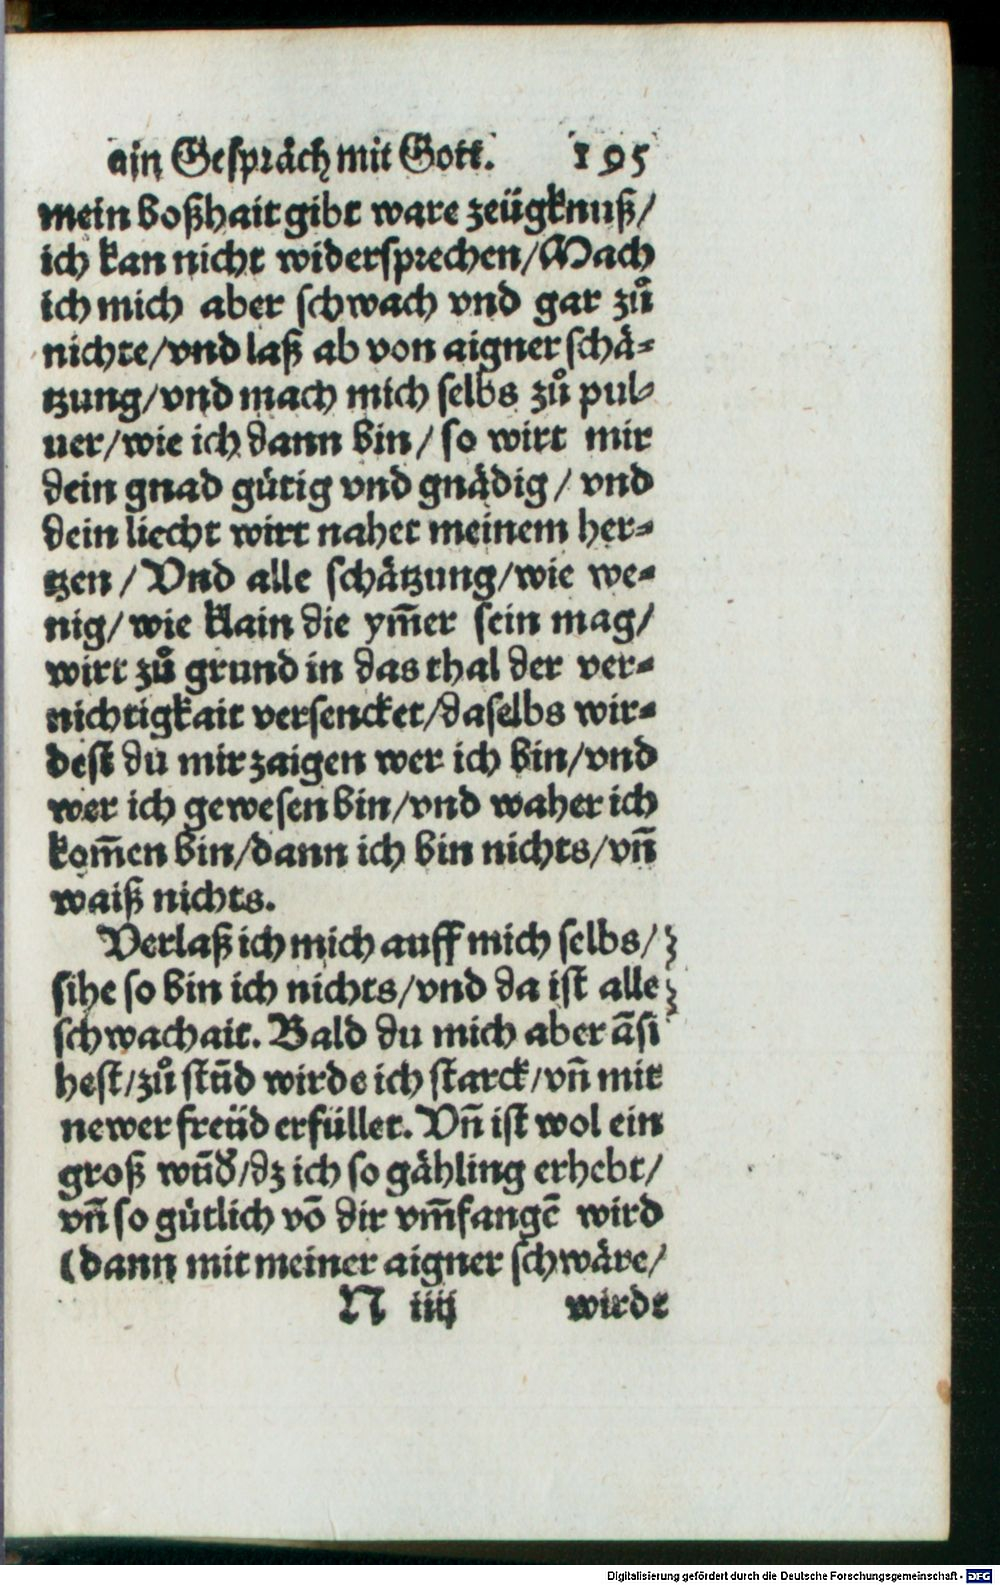 ain Gespräch mit Gott. 195
mein boßhait gibt ware zeügknuß/
ich kan nicht widersprechen/Mach
ich mich aber schwach vnd gar zů
nichte/vnd laß ab von aigner schä-
tzung/vnd mach mich selbs zů pul-
uer/wie ich dann bin/ so wirt mir
dein gnad gütig vnd gnädig/ vnd
dein liecht wirt nahet meinem her-
tzen/ Vnd alle schätzung/wie we-
nig/ wie klain die ym̃er sein mag/
wirt zů grund in das thal der ver-
nichtigkait versencket/daselbs wir-
dest du mir zaigen wer ich bin/vnd
wer ich gewesen bin/vnd waher ich
kom̃en bin/dann ich bin nichts/vñ
waiß nichts.
Verlaß ich mich auff mich selbs/
sihe so bin ich nichts/vnd da ist alle
schwachait. Bald du mich aber ãsi
hest/zů stũd wirde ich starck/vñ mit
newer freüd erfüllet. Vñ ist wol ein
groß wũd/dz ich so gähling erhebt/
vñ so gütlich võ dir vm̃fangẽ wird
(dann mit meiner aigner schwäre/
N iiij wirdt
Digitalisierung gefördert durch die Deutsche Forschungsgemeinschaft - DFG